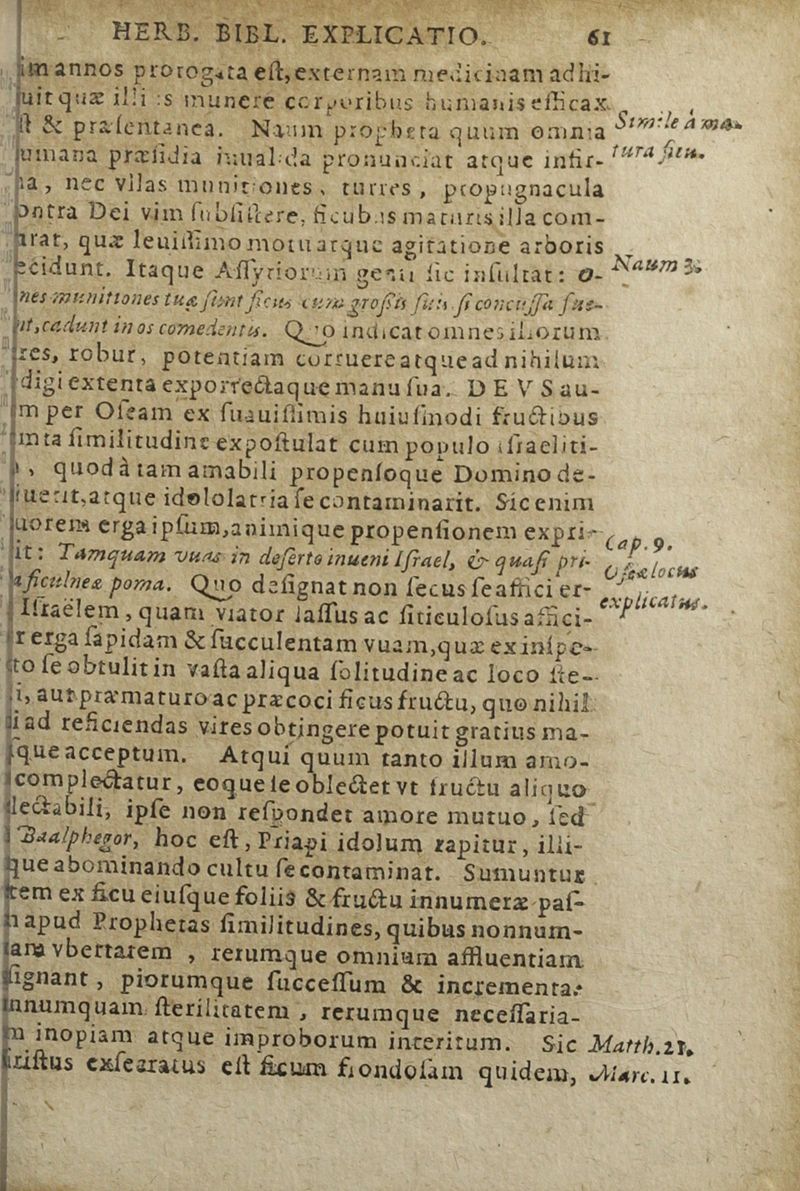 HERB. BIBL. EXPLICATIO. 61
annos prorogata est, externam medicinam adhi-
quæ illi is munere corporibus humanis efficax
& præsentanea. Naum propheta quum omnia
præsidia inualida pronunciat atque infir-
Simile a ma-
tura ficu.
nec vilas munitiones, turres, propugnacula
Dei vim subsistere, ficubus maturis illa com-
quæ leuissimo motu atque agitatione arboris
Itaque Assyriorum genti sic insultat: O-
Naum 3.
munitiones tuæ sunt ficus cum grossis suis si concussæ fue-
cadunt in os comedentis. Quo indicat omnes illorum
robur, potentiam corruere atque ad nihilum
extenta exporrectaque manu sua. DEVS au-
per Oseam ex suauissimis huiusmodi fructibus
similitudine expostulat cum populo israeliti-
quod à tam amabili propensoque Domino de-
atque idololatria se contaminarit. Sic enim
erga ipsum, animique propensionem expri-
Tamquam vuas in deserto inueni Israel, & quasi pri-
Cap. 9.
Oseæ locus
explicatus.
ficulneæ poma. Quo designat non secus se affici er-
Israelem, quam viator lassus ac siticulosus affici-
erga sapidam & succulentam vuam, quæ ex inspe-
se obtulit in vasta aliqua solitudine ac loco ste-
aut præmaturo ac præcoci ficus fructu, quo nihil
ad reficiendas vires obtingere potuit gratius ma-
que acceptum. Atqui quum tanto illum amo-
complectatur, eoque se oblectet vt fructu aliquo
ipse non respondet amore mutuo, sed
Baalphegor, hoc est, Priapi idolum rapitur, illi-
que abominando cultu se contaminat. Sumuntur
ex ficu eiusque foliis & fructu innumeræ pas-
apud Prophetas similitudines, quibus nonnum-
vbertatem, rerumque omnium affluentiam
piorumque successum & incrementa:
sterilitatem, rerumque necessaria-
inopiam atque improborum interitum. Sic
Matth. 21.
exsecratus est ficum frondosam quidem,
Marc. 11.